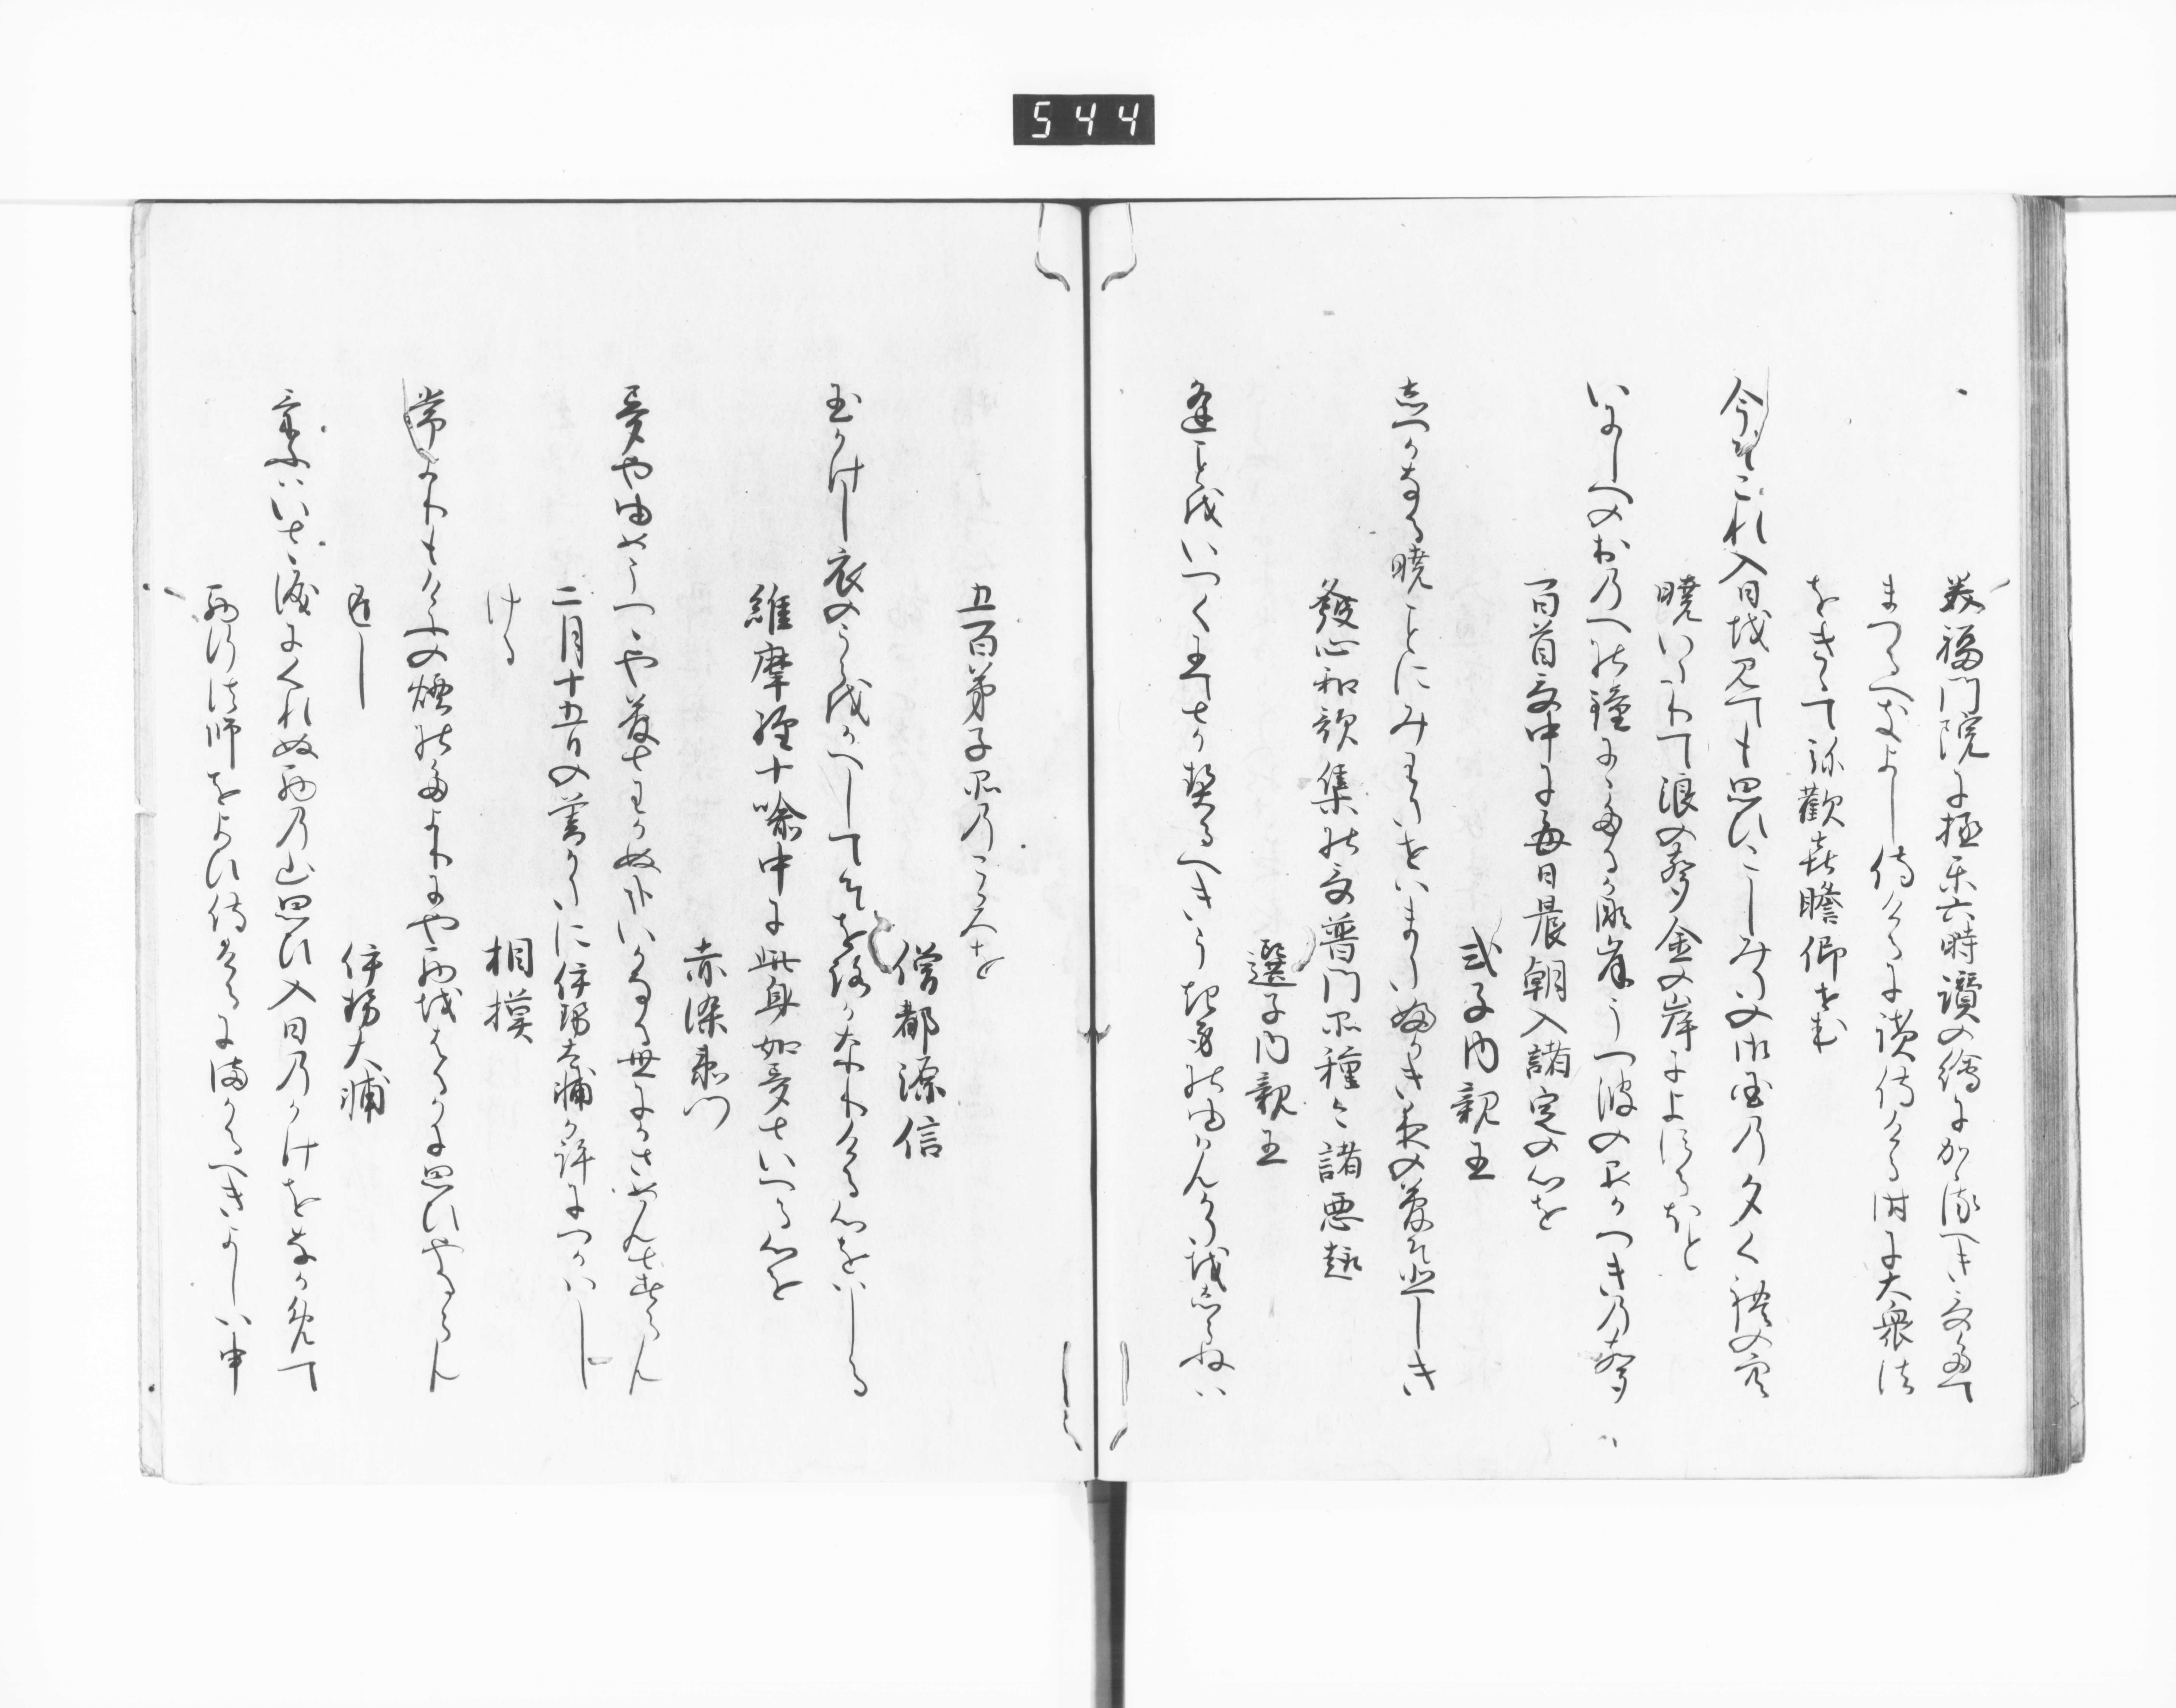 544
美福門院に極楽六時讃の絵にかかるへき哥たて
まつるへきよし侍けるによみ侍ける时に大衆法
をきゝて弥歓喜瞻仰せむ
今そこれ入日を見ても思ひこしみたの御国の夕くれの空
暁いたりて浪の声金の岸によするほと
いにしへのおのへの鐘にゝたるかな岸うつ波の暁のこゑ
百首哥中に毎日晨朝入諸定の心を
式子内親王
しつかなる暁ことにみわたせはまたふかき夜の夢そかなしき
發心和歌集の哥普門品種々諸悪趣
選子内親王
逢ことをいつくにてとか契るへきうき身のゆかんかたをしらねは
五百弟子品のこゝろを
僧都源信
玉かけし衣のうらをかへしてそをろかなりける心をはしる
維摩経十喩中に此身如夢といへる心を
赤染衛門
夢や夢うつゝや夢とわかぬかないかなる世にかさめんとすらん
二月十五日の暮かたに伊勢大輔か許につかはし
ける
相模
常よりもけふの煙のたよりにや西をはるかに思ひやるらん
返し
伊勢大輔
けふはいとゝ涙にくれぬ西の山思ひ入日のかけをなかめて
西行法師をよひ侍けるにまかるへきよしは申